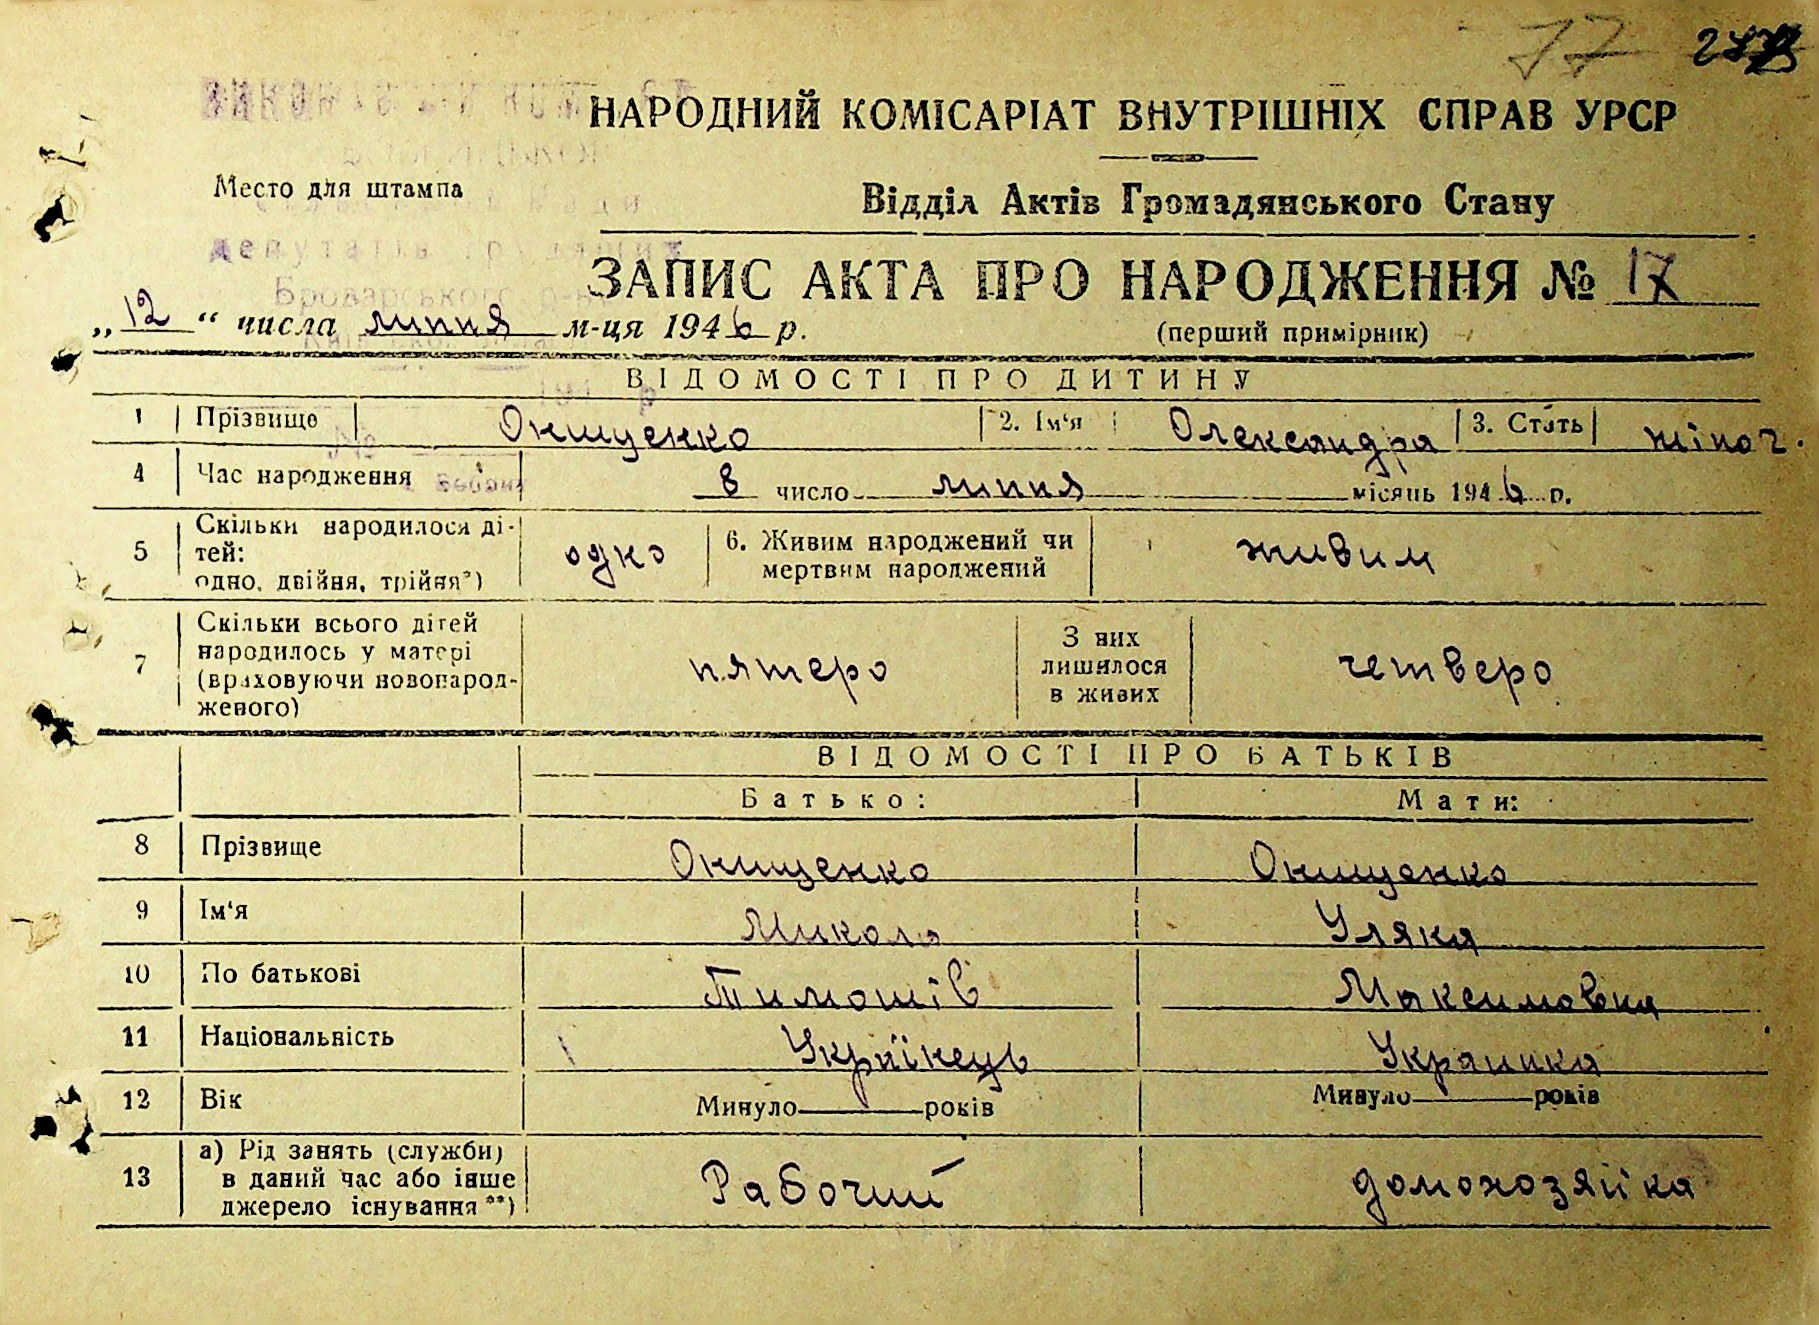 77
НАРОДНИЙ КОМІСАРІАТ ВНУТРІШНІХ СПРАВ УРСР
Место для штампа
Відділ Актів Громадянського Стану
депутатів трудящих
Броварського р-н
ЗАПИС АКТА ПРО НАРОДЖЕННЯ № 17
„12“ числа липня м-ця 1946 р.
(перший примірник)
ВІДОМОСТІ ПРО ДИТИНУ
1 Прізвище Онищенко 2. Ім'я Олександра 3. Стать жіноч.
4 Час народження 8 число липня місяць 1946 р.
5 Скільки народилося ді-
тей:
одно, двійня, трійня*) одно 6. Живим народжений чи
мертвим народжений живим
7 Скільки всього дітей
народилось у матері
(враховуючи новонарод-
женого) пятеро З них
лишилося
в живих четверо
ВІДОМОСТІ ПРО БАТЬКІВ
Батько: Мати:
8 Прізвище Онищенко Онищенко
9 Ім'я Микола Уляна
10 По батькові Тимошів Максимовна
11 Національність Украінець Украинка
12 Вік Минуло років Минуло років
13 а) Рід занять (служби)
в даний час або інше
джерело існування **) Рабочий домохозяйка